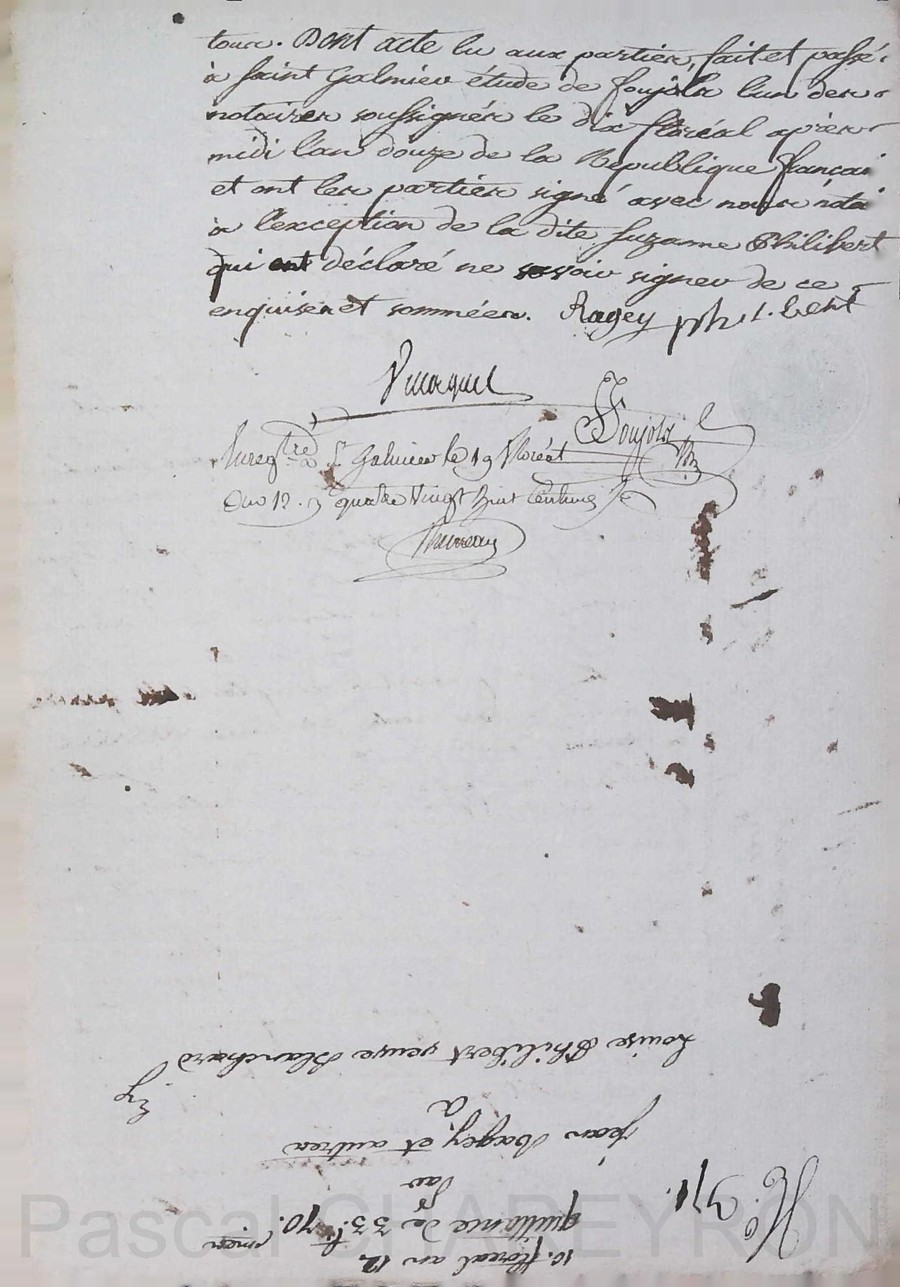 tous. Dont acte lu aux parties, fait et passé
à saint Galmier étude de Foujols l'un des
notaires soussignés le dix floréal après
midi l'an douze de la République françai
et ont les parties signé avec nous nota
à l'exception de la dite suzanne Philibert
qui ont déclaré ne savoir signer de ce
enquises et sommées. Ragey philibert
Foujols
Enregtré à St Galmier le 19 floréal
an 12. quatre vingt huit centimes
10. floreal an 12
quittance de 33.f 70.
par
jean Ragey et autres
a
Louise Philibert veuve Blanchard
No. 371.
Pascal CHAREYRON